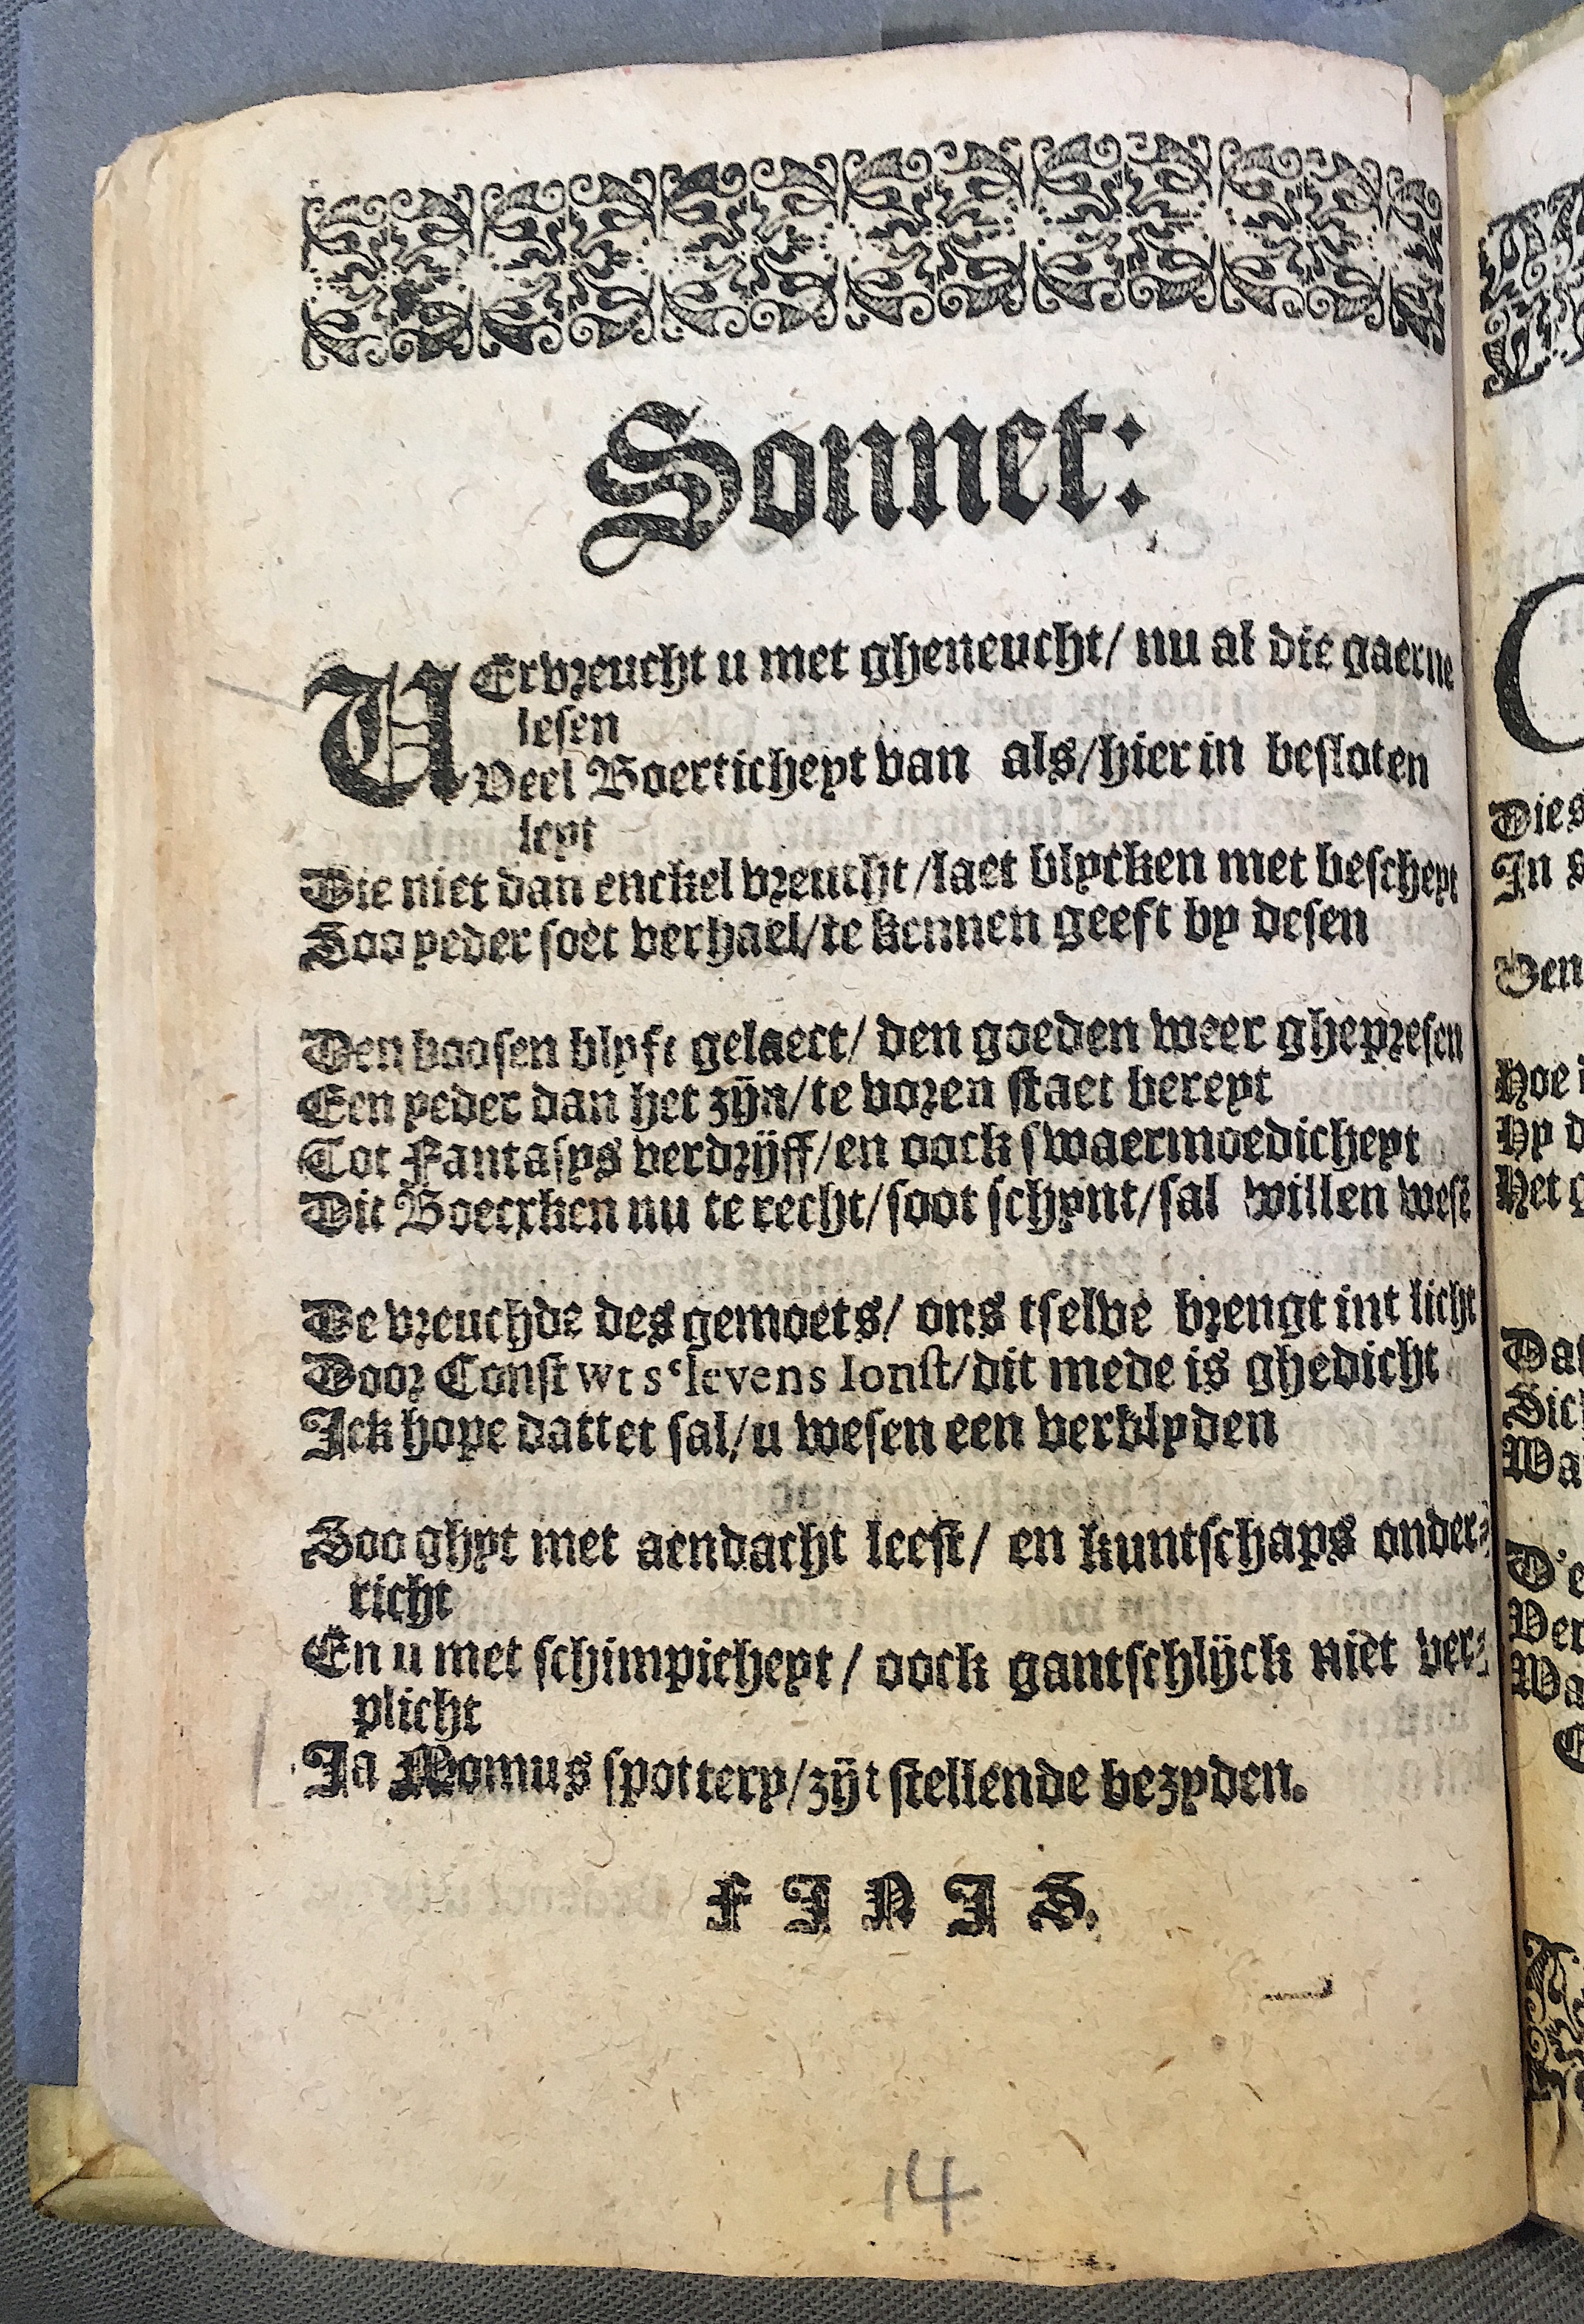 Sonnet:
VErvreucht u met gheneucht/ nu al die gaerne
lesen
Veel Boerticheyt van als/hier in besloten
leyt
Die niet dan enckel vreucht/laet blycken met bescheyt
Soo yeder soet verhael/te kennen geeft by desen
Den boosen blyft gelaect/ den goeden weer ghepresen
Een yeder dan het zijn/te voren staet bereyt
Tot Fantasys verdrijff/en oock swaermoedicheyt
Dit Boecxken nu te recht/soot schynt/sal willen wesē
De vreuchde des gemoets/ ons tselve brengt int licht
Door Const wt s'levens Ionst/dit mede is ghedicht
Ick hope dattet sal/u wesen een verblyden
Soo ghyt met aendacht leest/ en kuntschaps onder-
richt
En u met schimpicheyt/ oock gantschlijck niet ver-
plicht
Ja Momus spottery/zijt stellende bezyden.
FINIS.
14
Dies
In s
Den
Hoe i
Hy d
Het g
Dat
Sich
Wa
D'e
Ver
Wa